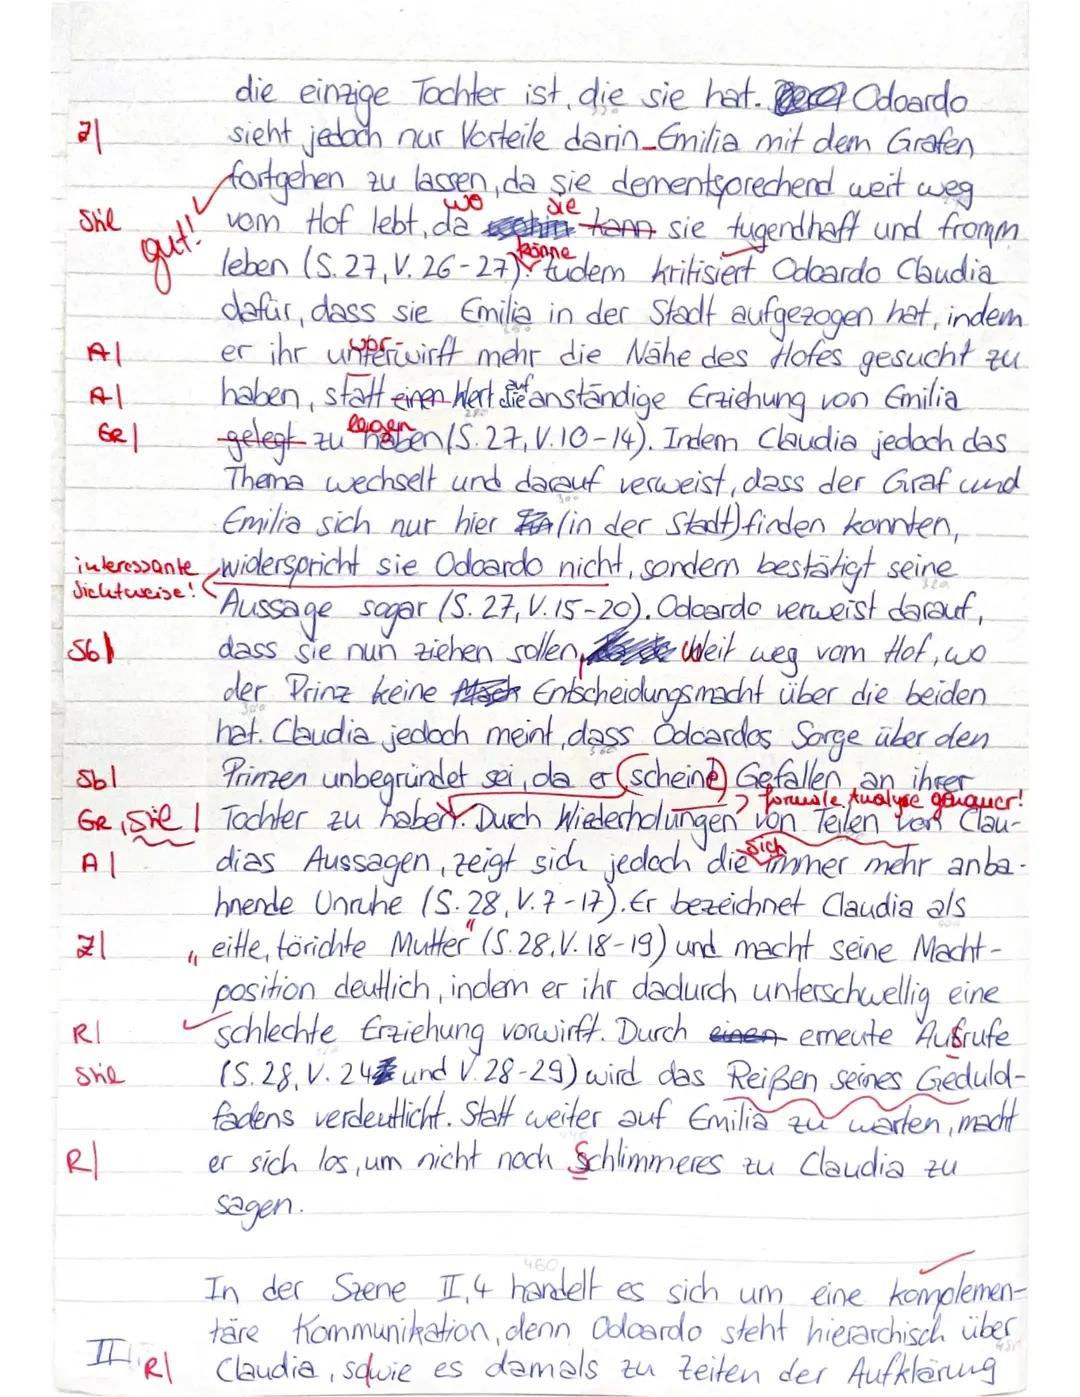 die einzige Tochter ist, die sie hat. Odoardo
Z| sieht jedoch nur Vorteile darin Emilia mit dem Grafen
fortgehen zu lassen, da sie dementsprechend weit weg
wo sie
Stil gut! vom Hof lebt, da wohin kann sie tugendhaft und fromm
könne
leben (S. 27, V. 26-27). Zudem kritisiert Odoardo Claudia
dafür, dass sie Emilia in der Stadt aufgezogen hat, indem
vor-
A| er ihr unterwirft mehr die Nähe des Hofes gesucht zu
auf
A| haben, statt einen Wert die anständige Erziehung von Emilia
legen
GR| gelegt zu haben (S. 27, V. 10-14). Indem Claudia jedoch das
Thema wechselt und darauf verweist, dass der Graf und
300
Emilia sich nur hier (in der Stadt) finden konnten,
interessante widerspricht sie Odoardo nicht, sondern bestätigt seine
320
Sichtweise! Aussage sogar (S. 27, V. 15-20). Odoardo verweist darauf,
Sb| dass sie nun ziehen sollen, Weit weg vom Hof, wo
der Prinz keine Entscheidungsmacht über die beiden
hat. Claudia jedoch meint, dass Odoardos Sorge über den
360
Sb| Prinzen unbegründet sei, da er scheine Gefallen an ihrer
? formale Analyse genauer!
GR, Stil| Tochter zu haben. Durch Wiederholungen von Teilen von Clau-
sich
A| dias Aussagen, zeigt sich jedoch die immer mehr anba-
hnende Unruhe (S. 28, V. 7-17). Er bezeichnet Claudia als
Z| „eitle, törichte Mutter" (S. 28, V. 18-19) und macht seine Macht-
position deutlich, indem er ihr dadurch unterschwellig eine
R| schlechte Erziehung vorwirft. Durch einen erneute Ausrufe
Stil (S. 28, V. 24 und V. 28-29) wird das Reißen seines Geduld-
fadens verdeutlicht. Statt weiter auf Emilia zu warten, macht
R| er sich los, um nicht noch Schlimmeres zu Claudia zu
sagen.
460
In der Szene II,4 handelt es sich um eine komplemen-
täre Kommunikation, denn Odoardo steht hierarchisch über
II. R| Claudia, sowie es damals zu Zeiten der Aufklärung